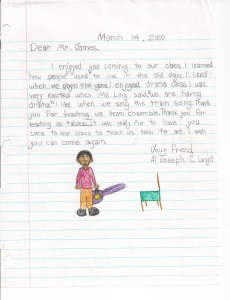 March 14, 2000
Dear Mr. James,
I enjoyed you coming to our class. I learned
how people used to live in the old days. I liked
when we played the game. I enjoyed drama class. I was
very excited when Ms. Ling said, "we are having
drama." I like when we sing the train song. Thank
you for teaching us team ensemble. Thank you for
teaching us tableau. It was really fun to have you
come to our class to teach us how to act. I wish
you can come again.
Your Friend,
Joseph C.